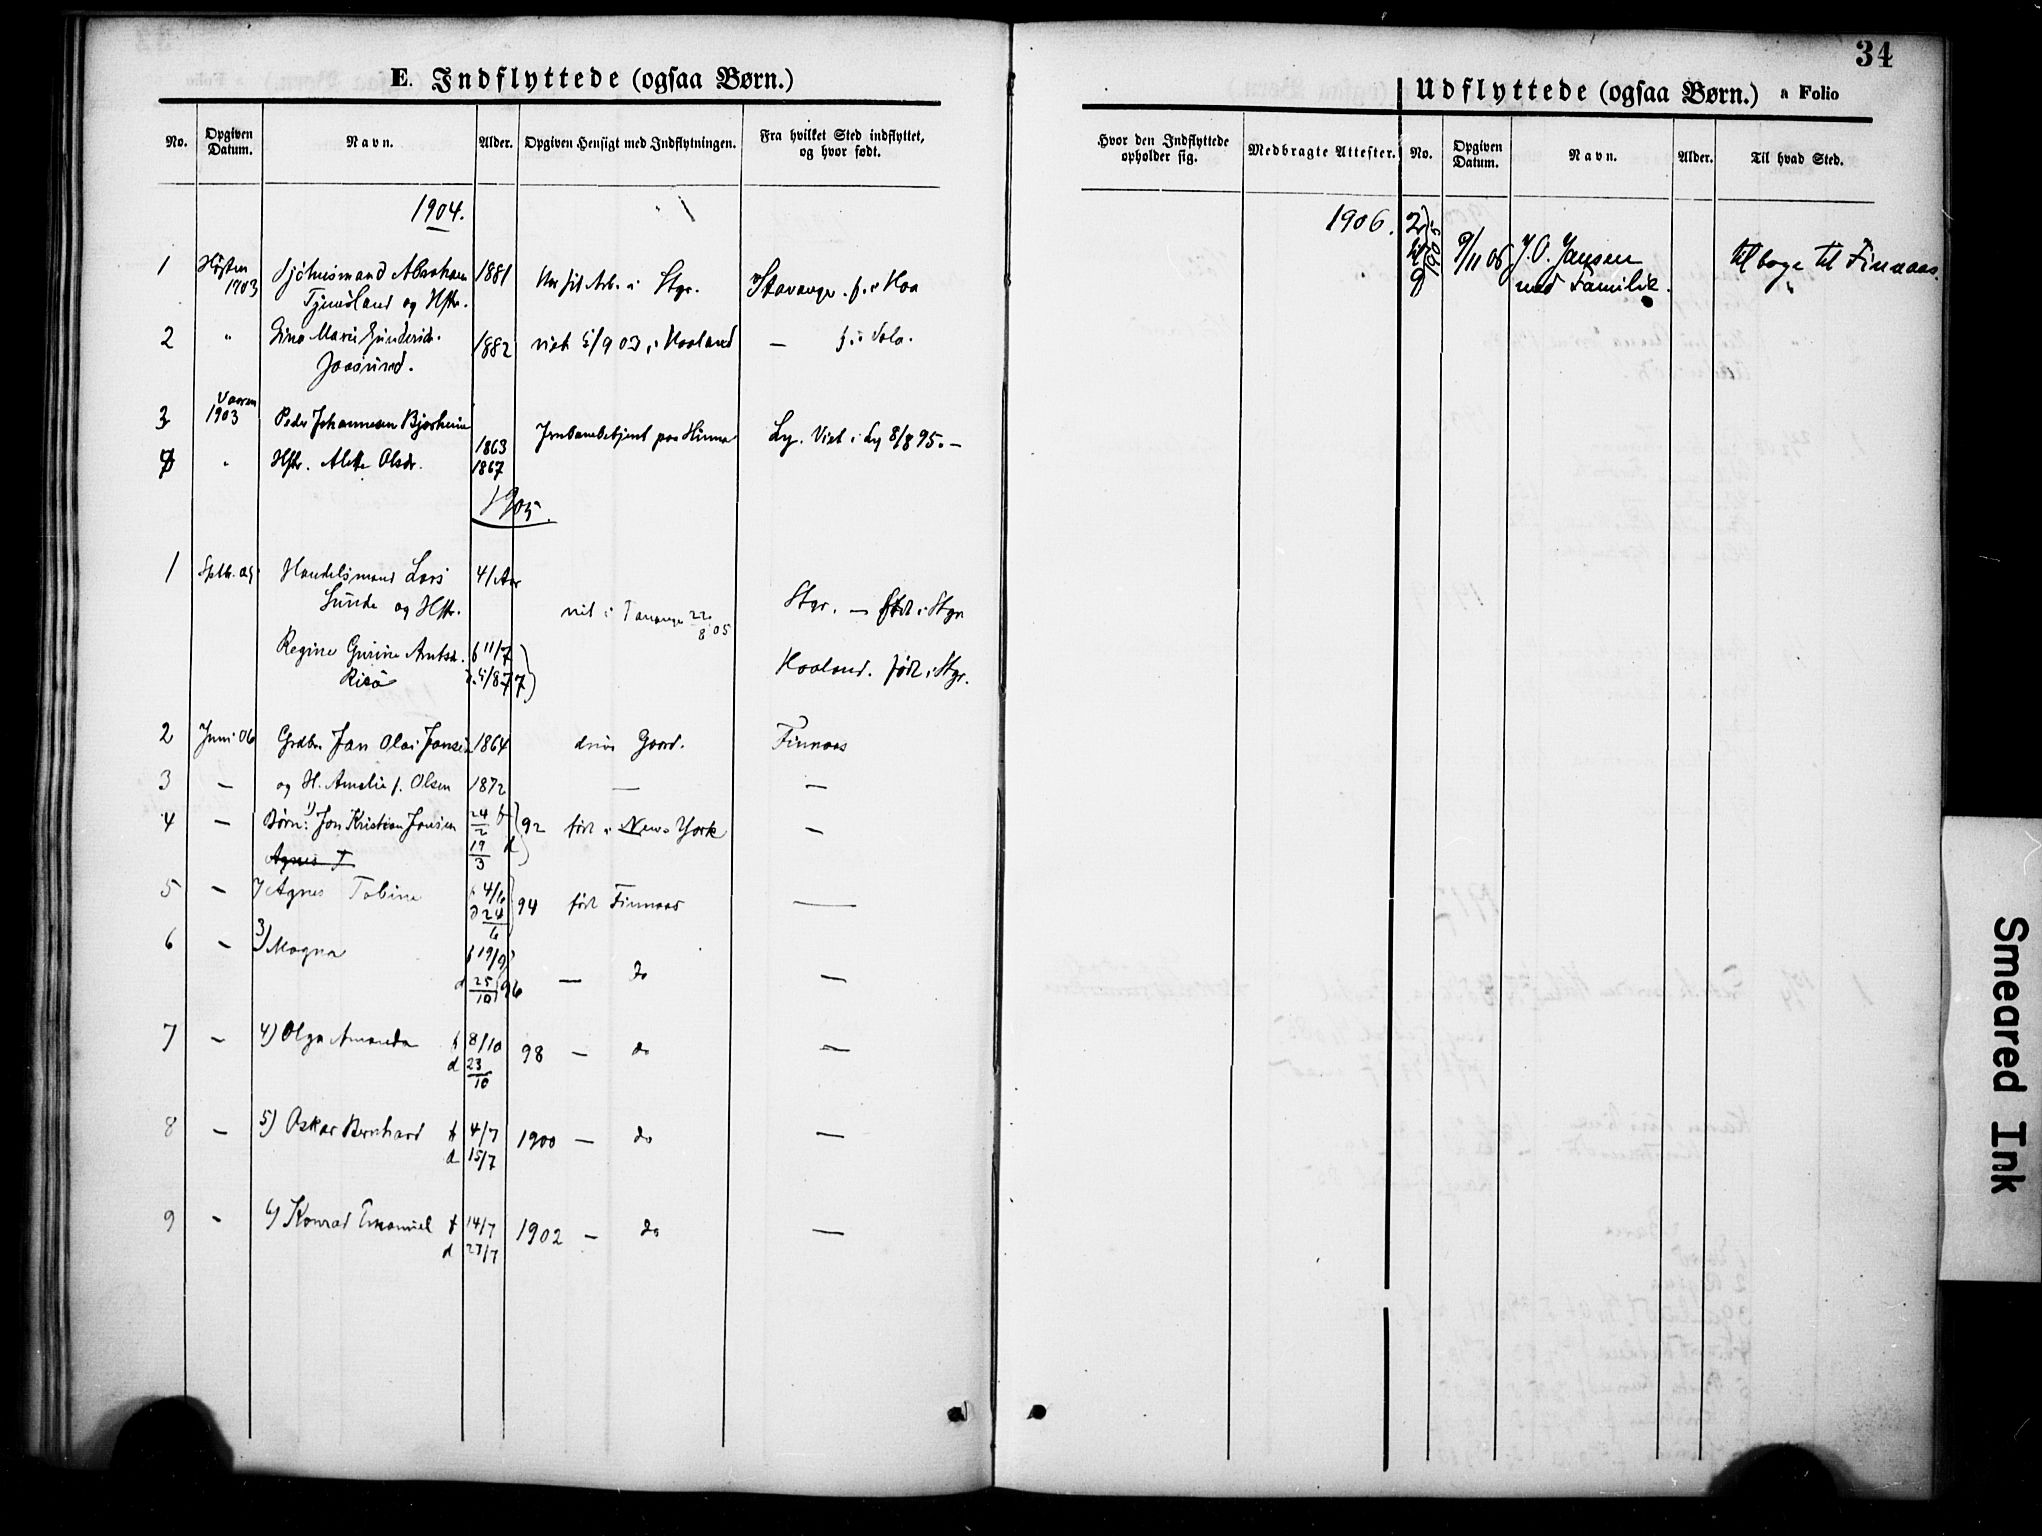 E. Indflyttede (ogsaa Børn.)
No. Opgiven Datum. Navn. Alder. Opgiven Hensigt med Indflytningen. Fra hvilket Sted indflyttet, og hvor født.
1904.
1 Høsten 1903 Abraham 1881 Arb. i Stgr. Stavanger. f. i Haa
Tjemsland og Hstr.
2 " Marie 1882 viet 5/9 03 i Haaland — f. i Sola.
Vaaren
3 1903 Peder Johannesen Bjorheim 1863 Jernbanebetjent paa Hinna Ly. Viet i Ly 8/8 95. —
4 " Hstr. Alette Olsdr. 1867
1905.
1 Septb. 05 Handelsmand Lars 41 Aar
Sunde og Hstr. viet i Tananger 22/8 05 Stgr. — født i Stgr
Regine Gurine
Risø Haaland. født i Stgr.
2 Juni 06 Grdbr. Jan Olai Jansen 1864 Gaard. Finnaas
3 — og H. Amalie f. Olsen 1872 — —
4 — Børn: 1) Jan Kristian Jansen 24/2 f 92 født i New York —
19/3 d
Agnes T
5 — Agnes Tobine f 4/6 94 født Finnaas —
d 24/6
6 — 3) Magna f 19/9
d 25/10 96 — do —
7 — 4) Olga Amanda f 8/10 98 — do —
d 23/10
8 — 5) Oskar Bernhard f 4/7 1900 — do —
d 15/7
9 - 6) Konrad Emanuel f 14/7 1902 — do —
d 27/7
34
Udflyttede (ogsaa Børn.) a Folio
Hvor den Indflyttede opholder sig. Medbragte Attester. No. Opgiven Datum. Navn. Alder. Til hvad Sted.
1906. 2 til 9 1905 9/11 06 J. O. Jansen tilbage til Finnaas.
med Familie.
Smeared Ink